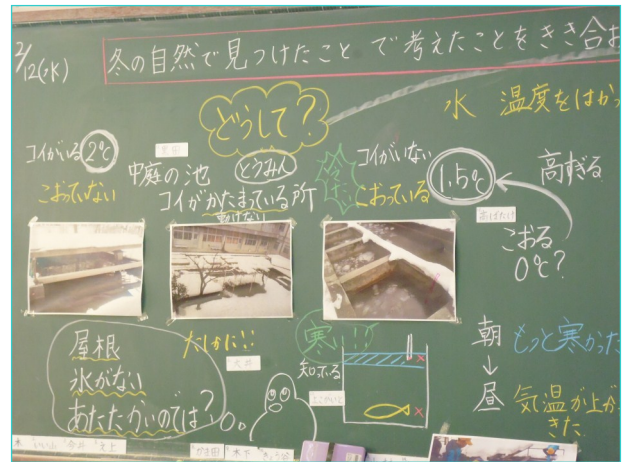 2/12(水)
冬の自然で見つけたこと で考えたことをきき合お
どうして?
水 温度をはかっ
コイがいる 2℃
こおっていない
中庭の池
とうみん
コイがかたまっている所
動けない
冷たい
コイがいない
こおっている
1.5℃
高すぎる
こおる
0℃?
屋根
氷がない
あたたかいのでは?
たしかに!!
寒い!!
知ってる
朝
↓
昼
もっと寒かった
気温が上が
きた